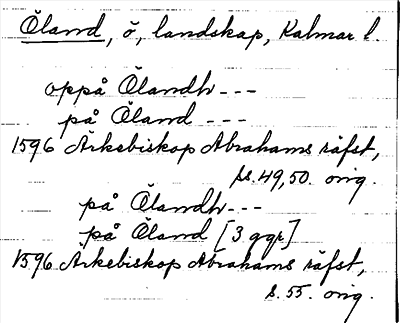 Öland, ö, landskap, Kalmar l.
oppå Ölandh ---
på Öland ---
1596 Ärkebiskop Abrahams räfst,
ss. 49, 50. orig.
på Ölandh ---
på Öland [3 ggr]
1596 Ärkebiskop Abrahams räfst,
s. 55. orig.